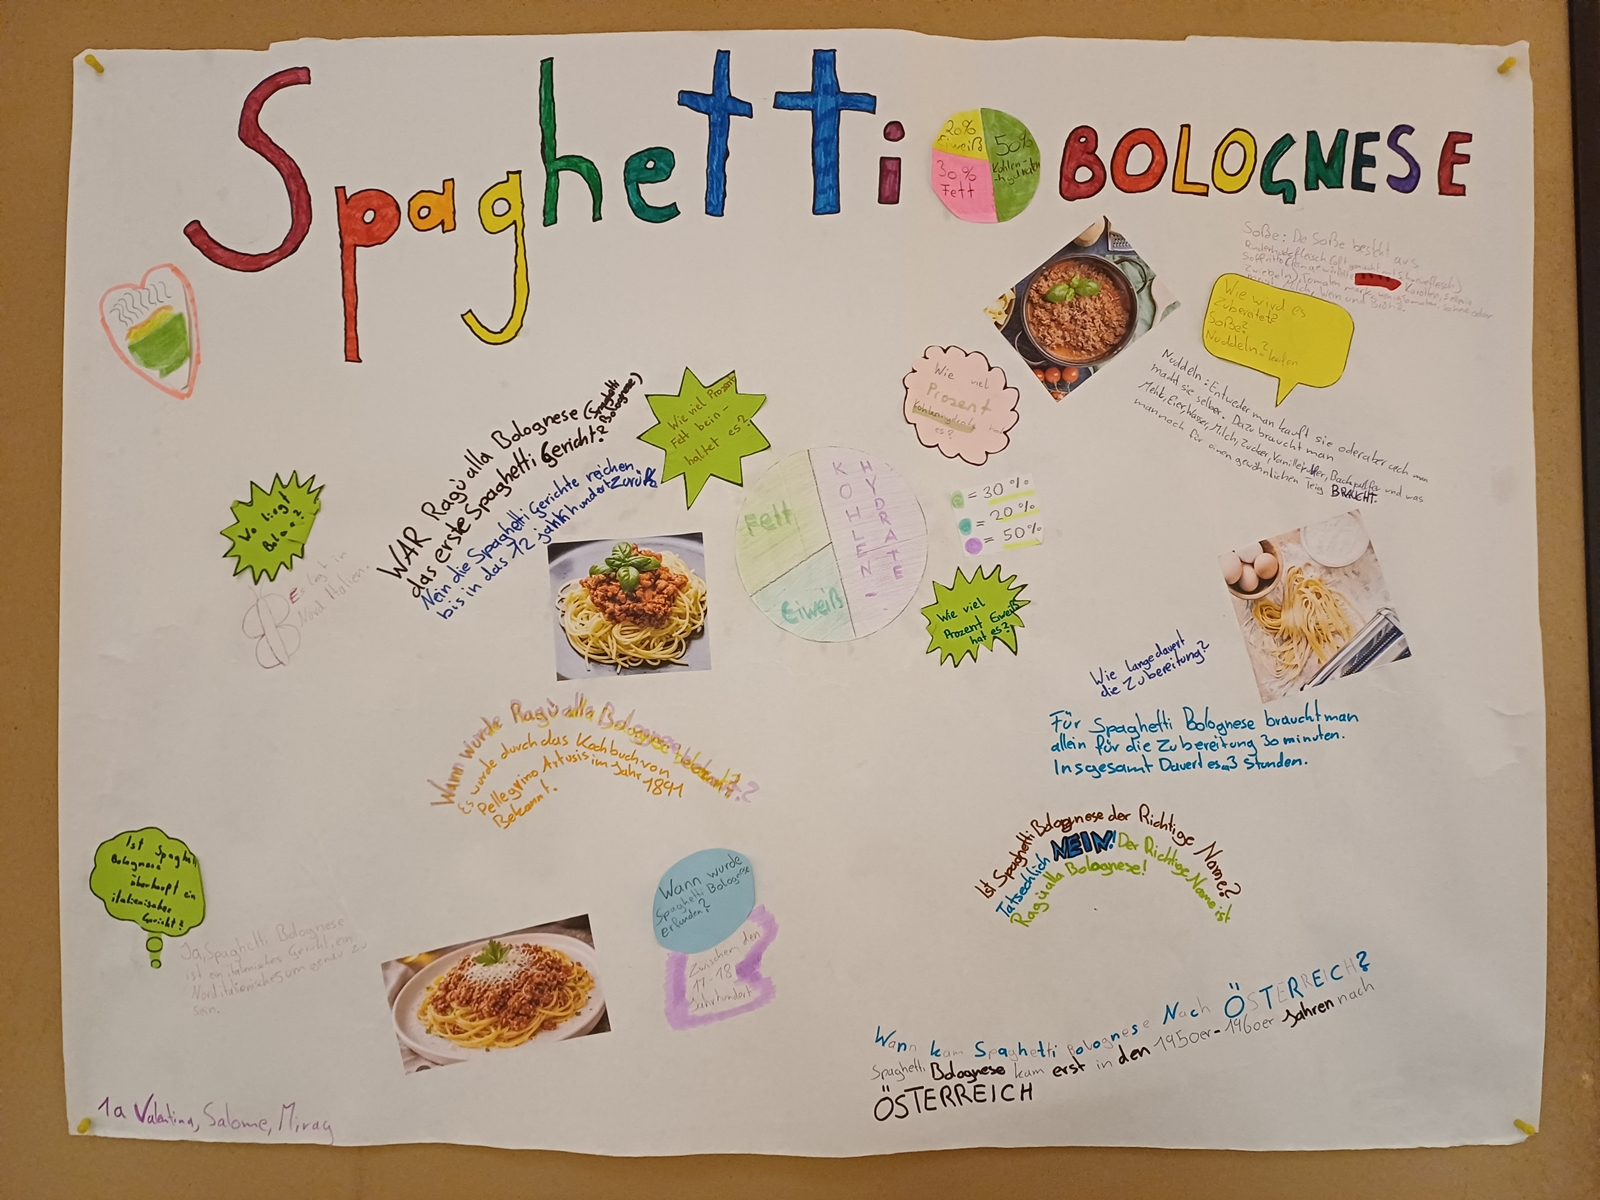 Spaghetti BOLOGNESE
20%
Eiweiß
30%
Fett
50%
Kohlen-
-hydrate
Soße: Die Soße besteht aus
Wie wird es
Zuberatet?
Soße?
Nuddeln?
Nuddeln: Entweder man kauft sie oder aber auch man
macht sie selber. Dazu braucht man
Mehl, Eier, Wasser, Milch, Zucker, Vanille, Backpulfer und was
man noch für einen gewöhnlichen Teig BRAUCHT.
WAR Ragù alla Bolognese (Spaghetti
Bolognese)
das erste Spaghetti Gericht?
Nein die Spaghetti Gerichte reichen
bis in das 12 jahrhundert zurük
Wie viel Prozent
Fett bein-
haltet es?
Wie viel
Prozent
Kohlenhydrate hat
es?
Fett
KOHLEN-
HYDRATE
Eiweiß
= 30%
= 20%
= 50%
Wie viel
Prozent Eiweiß
hat es?
Wo liegt
Es liegt in
Nord Italien.
Wie lange dauert
die Zubereitung?
Für Spaghetti Bolognese braucht man
allein für die Zubereitung 30 minuten.
Insgesamt Dauert es 3 Stunden.
Wann wurde Ragù alla Bolognese bekannt?
Es wurde durch das Kochbuch von
Pellegrino Artusis im Jahr 1891
Bekannt.
Ist Spaghetti Bolognese der Richtige Name?
Tatsechlich NEIN! Der Richtige Name ist
Ragù alla Bolognese!
Ist Spaghetti
Bolognese
überhaupt ein
italienisches
Gericht?
Ja, Spaghetti Bolognese
ist ein italienisches Gericht, ein
Norditalienisches um genau zu
sein.
Wann wurde
Spaghetti Bolognese
erfunden?
Zwischen den
17-18
Jahrhundert
Wann kam Spaghetti Bolognese Nach ÖSTERREICH?
Spaghetti Bolognese kam erst in den 1950er-1960er Jahren nach
ÖSTERREICH
1a Valentina, Salome,